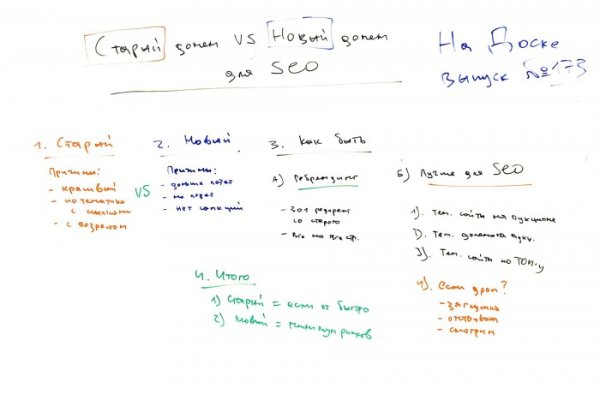 Старый домен VS Новый домен
для SEO
На Доске
выпуск №173
1. Старый
Причины:
- красивый
- по тематике
с ссылками
- с возрастом
VS
2. Новый
Причины:
- дольше
- нет санкций
3. Как быть
А) Ребрендинг
- 301 редирект
со старого
- все на все стр.
Б) Лучше для SEO
1). Тем. сайты на аукционе
2). Тем. домены
3). Тем. сайты по ТОП-у
4). если дроп?
- загрузил
- отстоялся
- смотрим
4. Итого
1) Старый = если ОК быстро
2) Новый = минимум рисков